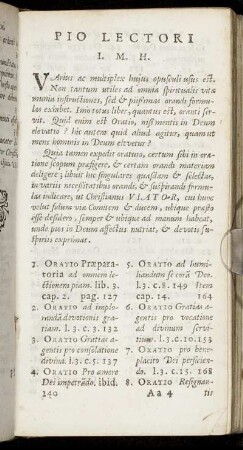 PIO LECTORI
I. M. H.
VArius ac multiplex hujus opusculi usus est.
Non tantum utiles ad omnia spiritualis vitæ
munia instructiones, sed & piissimas orandi formu-
las exhibet. Imò totus liber, quantus est, oranti ser-
vit. Quid enim est Oratio, nisi mentis in Deum
elevatio? hic autem quid aliud agitur, quàm ut
mens hominis in Deum elevetur?
Quia tamen expedit oraturo, certum sibi in ora-
tione scopum præfigere, & certam orandi materiam
deligere; libuit hic singulares quasdam & selectas,
in variis necessitatibus orandi, & suspirandi formu-
las indicare, ut Christianus VIATOR, cui hunc
velut solum vitæ Comitem & ducem, ubique præstò
esse desidero, semper & ubique ad manum habeat,
unde pios in Deum affectus nutriat, & devota su-
spiria exprimat.
1. ORATIO Præpara-
toria ad omnem le-
ctionem piam. lib. 3.
cap. 2. pag. 127
2. ORATIO ad implo-
randā devotionis gra-
tiam. l. 3. c. 3. 132
3. ORATIO Gratias a-
gentis pro consolatione
divina. l. 3. c. 5. 137
4. ORATIO Pro amore
Dei impetrādo. ibid.
140
5. ORATIO ad humi-
liandum se corā Deo.
l. 3. c. 8. 149 Item
cap. 14. 164
6. ORATIO Gratias a-
gentis pro vocatione
ad divinum servi-
tium. l. 3. c. 10. 153
7. ORATIO pro bene-
placito Dei perficien-
do. l. 3. c. 15. 168
8. ORATIO Resignan-
Aa 4 tis